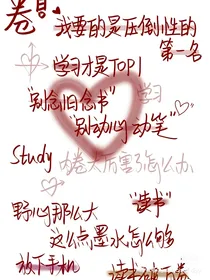 卷日
我要的是压倒性的
第一名
学习才是TOP1
"别念旧念书"
学习
"别动心动笔"
Study 内卷太厉害了怎么办
野心那么大
"读书"
这么点墨水怎么够
放下手机